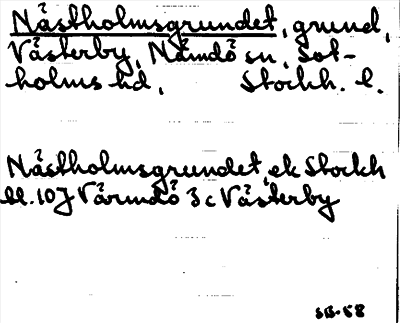 Nåstholmsgrundet, grund,
Västerby, Nämdö sn, Sot-
holms hd, Stockh. l.
Nåstholmsgrundet, ek Stockh
bl. 10J Värmdö 3c Västerby
SB-58